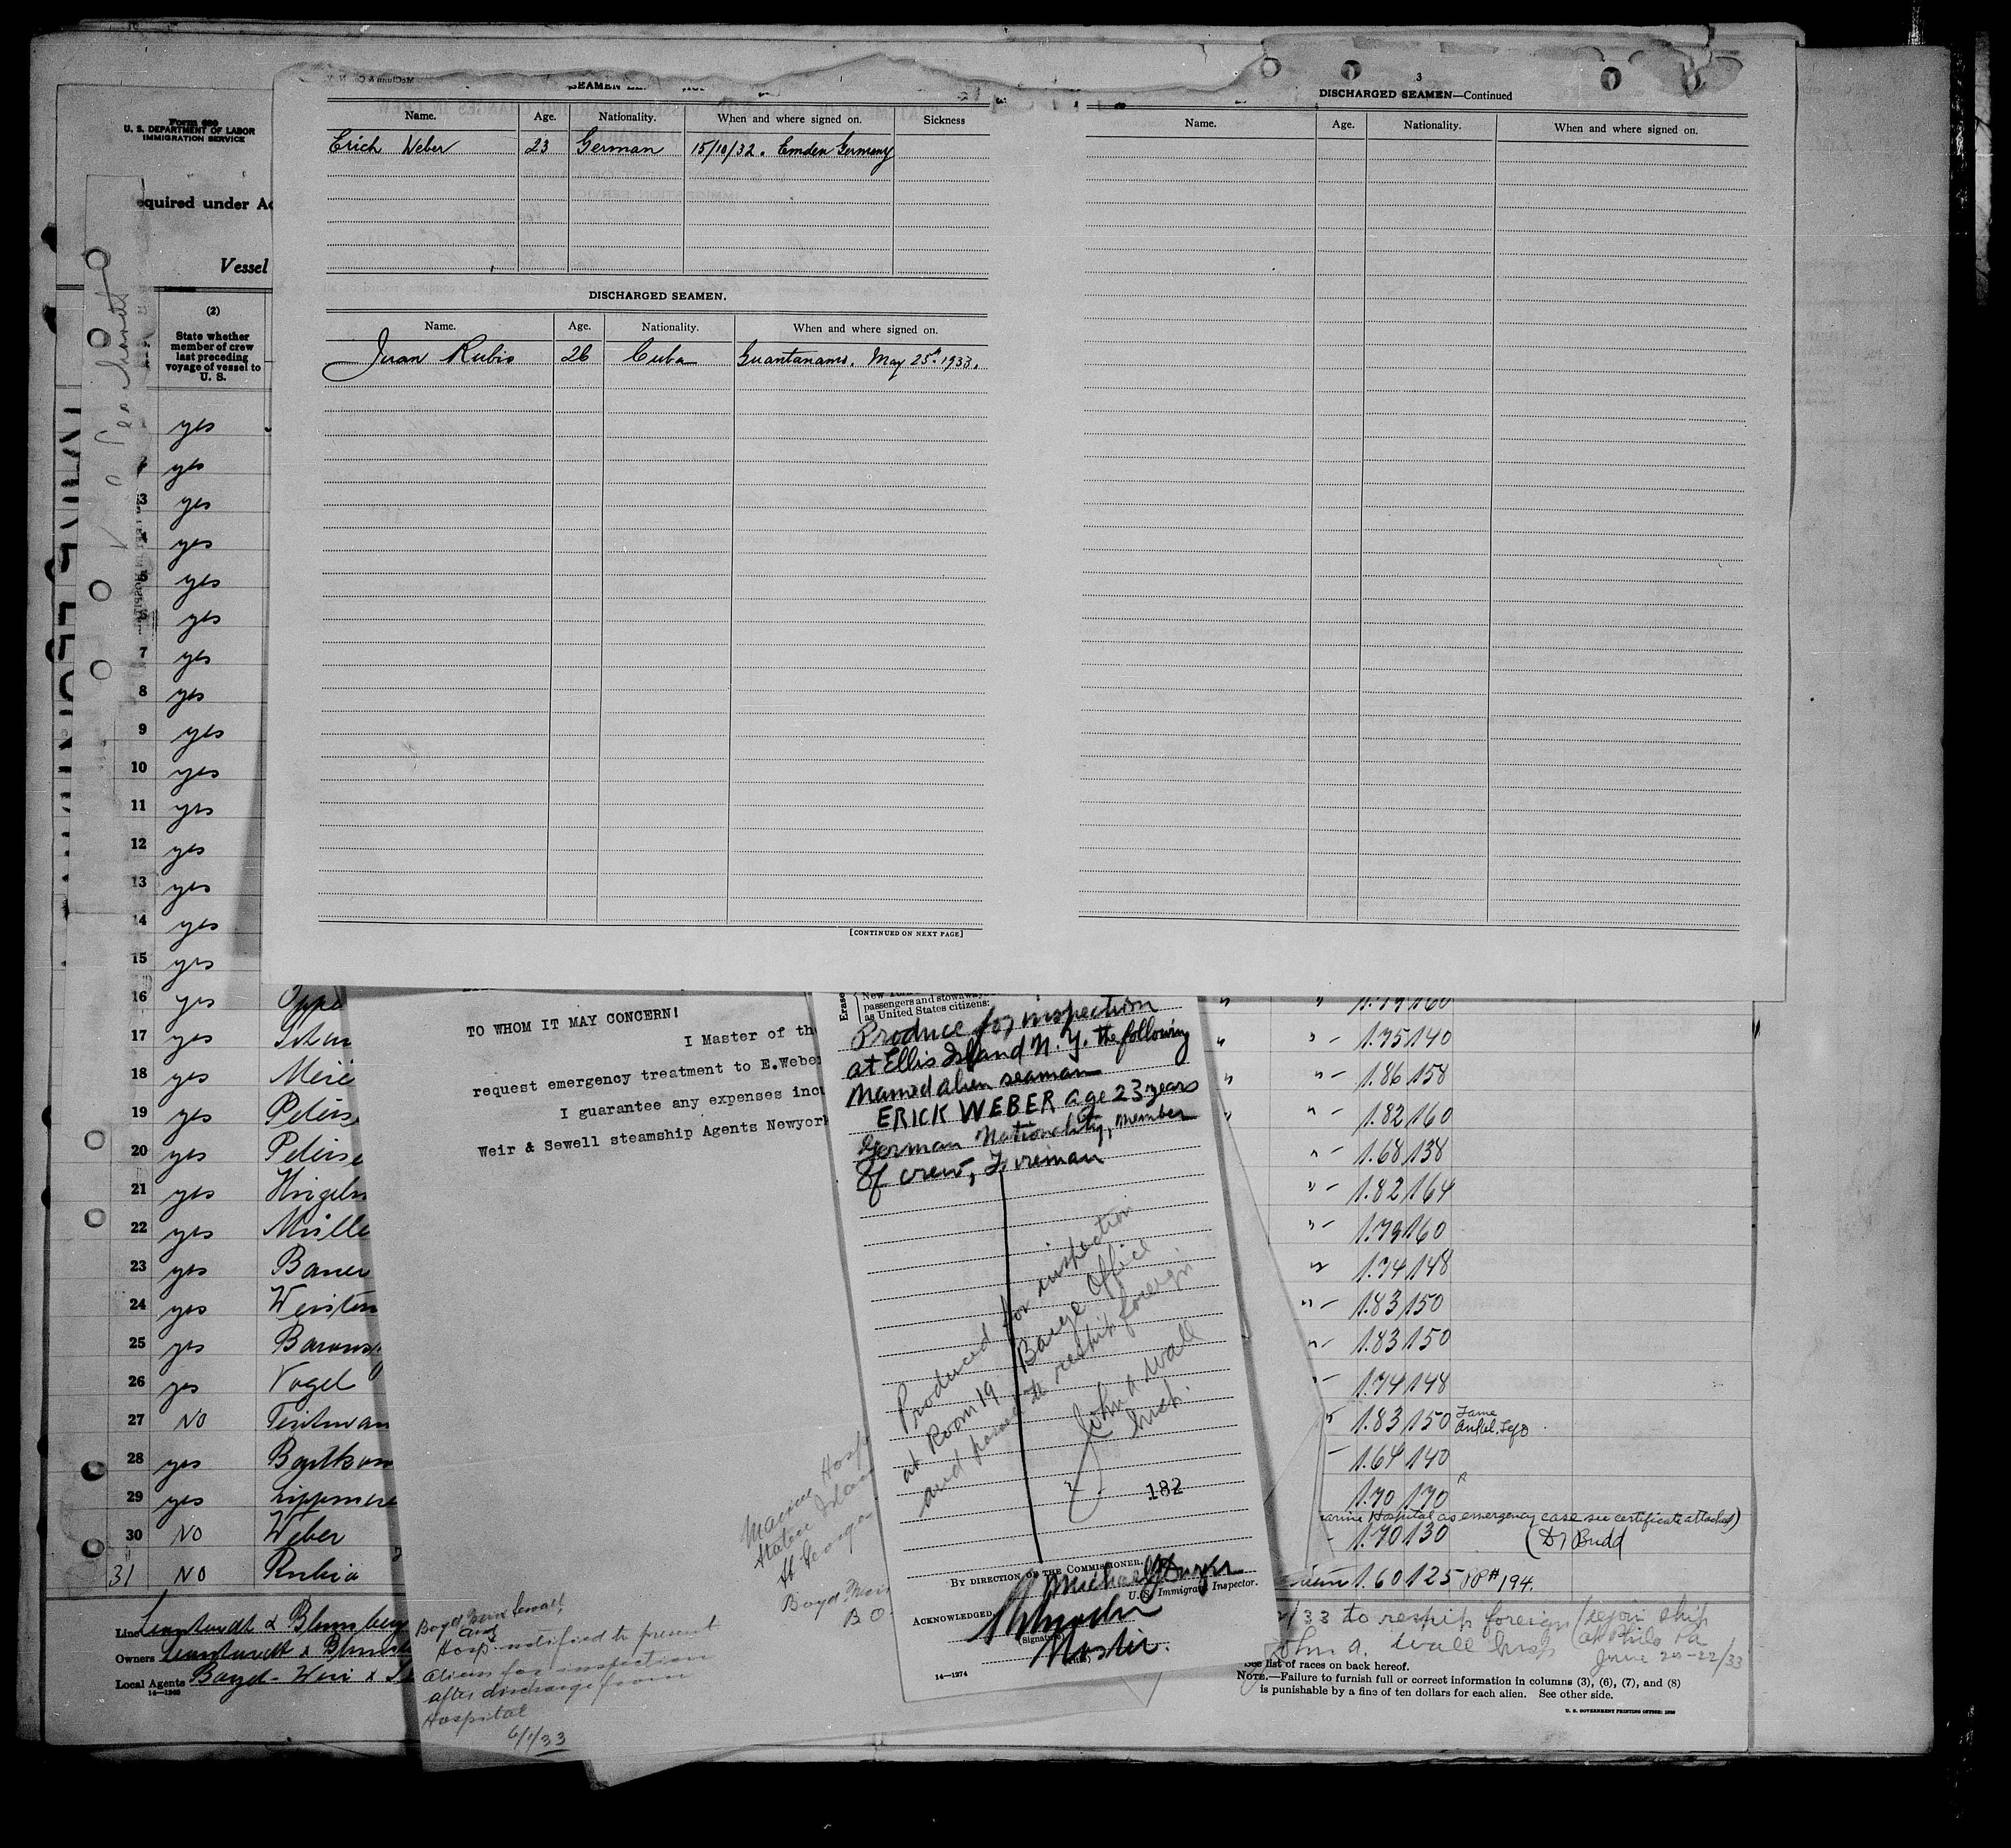 3
DISCHARGED SEAMEN—Continued
Name. Age. Nationality. When and where signed on. Sickness
Erich Weber 23 German 15/10/32. Emden Germany
DISCHARGED SEAMEN.
Name. Age. Nationality. When and where signed on.
Juan Rubio 26 Cuba Guantanamo. May 25th 1933.
[CONTINUED ON NEXT PAGE]
Name. Age. Nationality. When and where signed on.
Form 680
U. S. DEPARTMENT OF LABOR
IMMIGRATION SERVICE
equired under Ac
Vessel
(2)
State whether
member of crew
last preceding
voyage of vessel to
U. S.
yes
yes
3 yes
4 yes
5 yes
6 yes
7 yes
8 yes
9 yes
10 yes
11 yes
12 yes
13 yes
14 yes
15 yes
16 yes Oppe
17 yes
18 yes
19 yes Peters
20 yes Peterse
21 yes
22 yes Mülle
23 yes Bauer
24 yes
25 yes
26 yes Vogel
27 NO
28 yes
29 yes
30 NO Weber
31 NO Rubio
Line
Owners
Local Agents Boyd-Weir & Se
14—1240
TO WHOM IT MAY CONCERN!
I Master of th
request emergency treatment to E.Weber
I guarantee any expenses incu
Weir & Sewell steamship Agents Newyork
Marine Hosp
Staten Island
St George
Boyd Weir
Boyd Weir & Sewall,
and
Hosp notified to present
aliens for inspection
after discharge from
Hospital
6/1/33
passengers and stowaways
as United States citizens:
Produce for inspection
at Ellis Island N.Y. the following
named alien seaman
ERICK WEBER age 23 years
German Nationality, member
of crew, Fireman
Produced for inspection
at Room 19 Barge Office
and permitted to reship foreign
John A Wall
Insp.
182
BY DIRECTION OF THE COMMISSIONER.
U. S. Immigrant Inspector.
ACKNOWLEDGED
(Signature)
Master.
(Title)
14—1274
1.79 160
" - 1.75 140
" - 1.86 158
" - 1.82 160
" - 1.68 138
" - 1.82 164
" - 1.79 160
" 1.74 148
" - 1.83 150
" - 1.83 150
- 1.74 148
1.83 150
- 1.64 140
1.70 170
arine Hospital as emergency case see certificate attached)
- 1.70 130 (Dr Budd
1.60 125 PP# 194.
/33 to reship foreign (rejoin ship
John A. Wall Insp at Phila Pa
June 20-22/33
See list of races on back hereof.
NOTE.—Failure to furnish full or correct information in columns (3), (6), (7), and (8)
is punishable by a fine of ten dollars for each alien. See other side.
U. S. GOVERNMENT PRINTING OFFICE: 1930